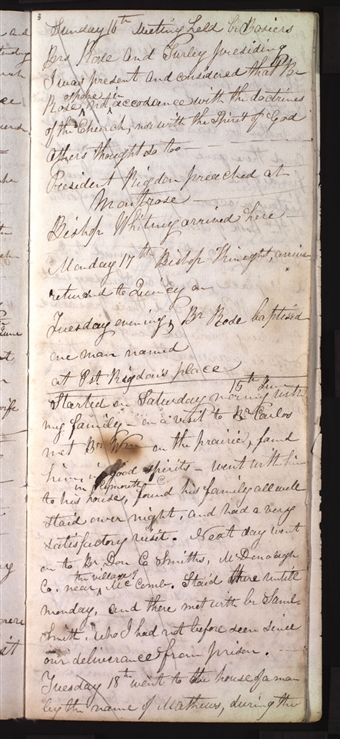 3
Sunday 16th Meeting held br Bosiers
Brs Rose and Turley presiding
I was present and considered that Br
Rose spoke not in accordance with the doctrines
of the Church, nor with the Spirit of God
Others thought so too—
President Rigdon preached at
Montrose—
Bishop Whitney arrived here—
Monday 17th Bishop Knight,
returned to Quincy on
Tuesday evening, Br Rose baptised
one man named
at Pst Rigdon's place
15th June
Started on Saturday morning with
my family on a visit to Br Carlos
met Br Wm on the prairie, found
him in good spirits— went with him
in Plymouth
to his house, found his family all well
staid over night, and had a very
satisfactory visit. Next day went
on to Br Don C Smiths, McDonough
Co. near the village McComb. Staid there untill
monday, and there met with br Saml
Smith who I had not before seen since
our deliverance from prison.—
Tuesday 18th went to the house of a man
by the name of Mathews, during the